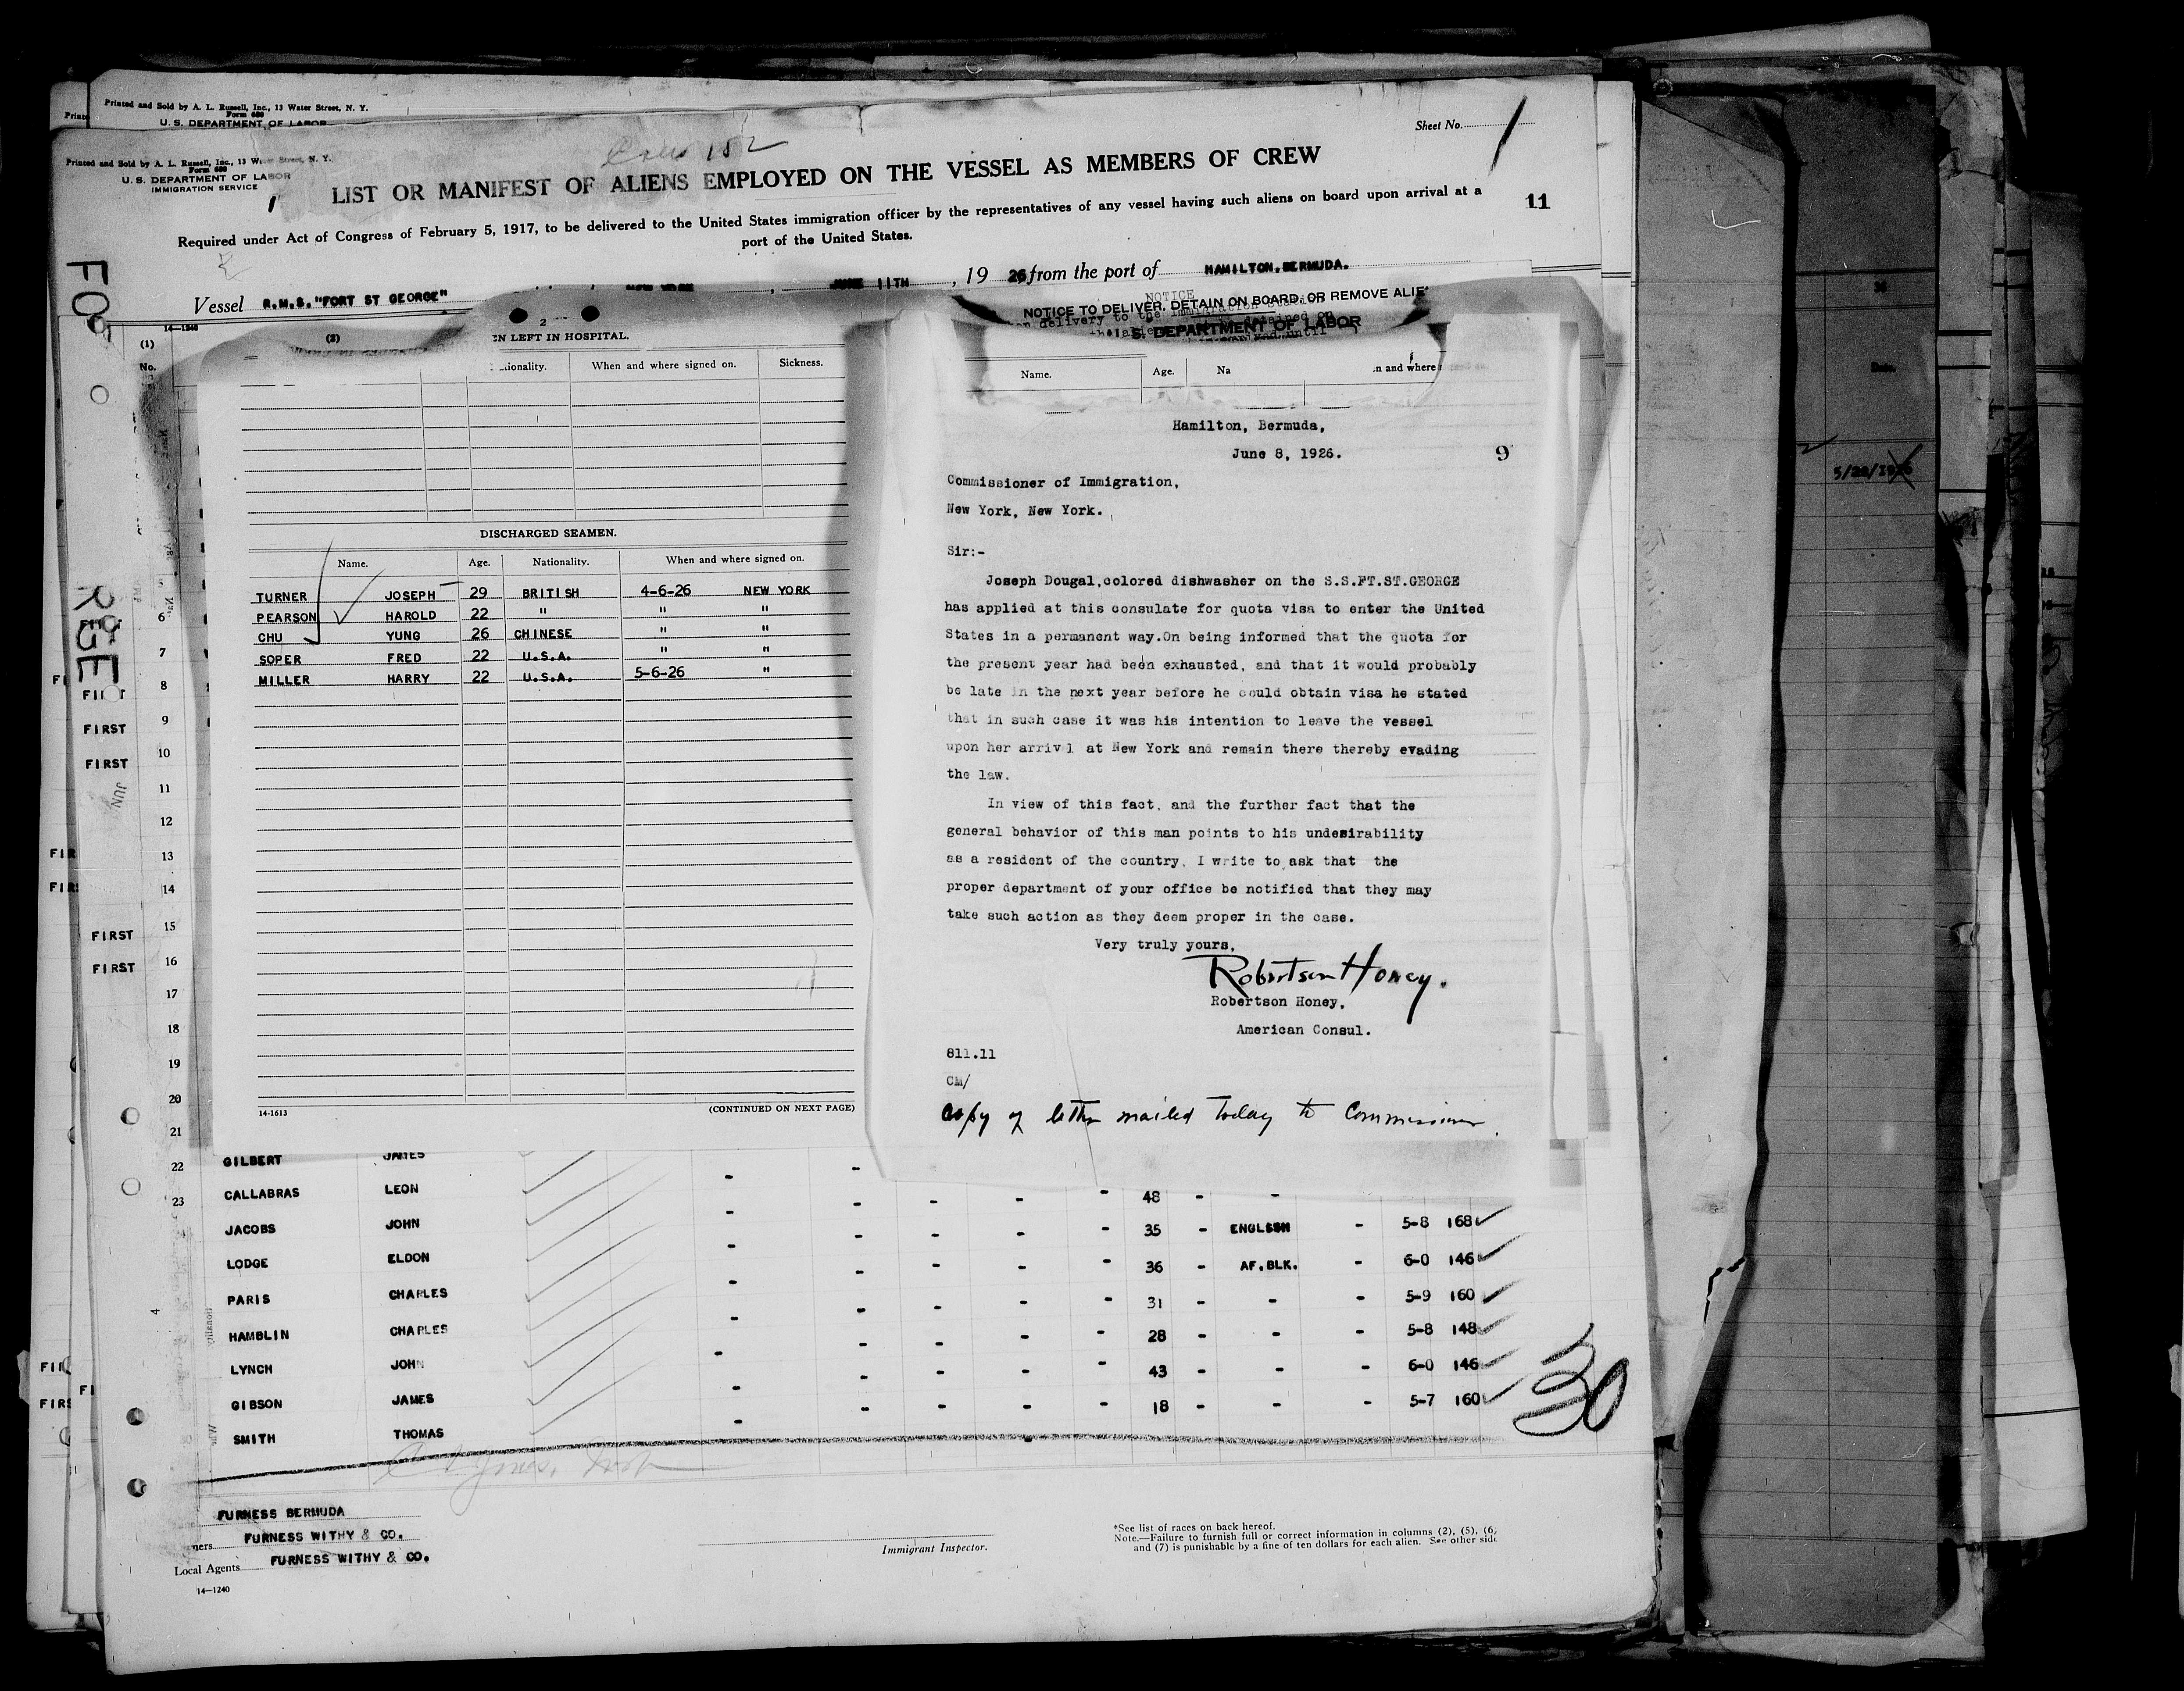 Printed and Sold by A. L. Russell, Inc., 13 Water Street, N. Y.
Form 680
U. S. DEPARTMENT OF LABOR
Printed and Sold by A. L. Russell, Inc., 13 Water Street, N. Y.
Form 680
U. S. DEPARTMENT OF LABOR
IMMIGRATION SERVICE
Sheet No. 1
152
LIST OR MANIFEST OF ALIENS EMPLOYED ON THE VESSEL AS MEMBERS OF CREW
11
Required under Act of Congress of February 5, 1917, to be delivered to the United States immigration officer by the representatives of any vessel having such aliens on board upon arrival at a
port of the United States.
Vessel R.M.S."FORT ST GEORGE" JUNE 11TH, 1926 from the port of HAMILTON.BERMUDA.
14-1240
(1)
No.
(2)
2
EN LEFT IN HOSPITAL.
When and where signed on. Sickness.
DISCHARGED SEAMEN.
Name. Age. Nationality. When and where signed on.
TURNER JOSEPH 29 BRITISH 4-6-26 NEW YORK
PEARSON HAROLD 22 " " "
CHU YUNG 26 CHINESE " "
SOPER FRED 22 U.S.A. " "
MILLER HARRY 22 U.S.A. 5-6-26 "
14-1613 (CONTINUED ON NEXT PAGE)
NOTICE
NOTICE TO DELIVER, DETAIN ON BOARD, OR REMOVE ALIE
on delivery to the Immigration Station
S. DEPARTMENT OF LABOR
Name. Age. Na n and where
Hamilton, Bermuda,
June 8, 1926.
9
Commissioner of Immigration,
New York, New York.
Sir:-
Joseph Dougal,colored dishwasher on the S.S.FT.ST.GEORGE
has applied at this consulate for quota visa to enter the United
States in a permanent way.On being informed that the quota for
the present year had been exhausted, and that it would probably
be late in the next year before he could obtain visa he stated
that in such case it was his intention to leave the vessel
upon her arrival at New York and remain there thereby evading
the law.
In view of this fact, and the further fact that the
general behavior of this man points to his undesirability
as a resident of the country, I write to ask that the
proper department of your office be notified that they may
take such action as they deem proper in the case.
Very truly yours,
Robertson Honey.
Robertson Honey,
American Consul.
811.11
CM/
Copy of letter mailed today to Commissioner.
FO
RGE
FIRST
FIRST
FIRST
FIRST
JUN
6
7
8
9
10
11
12
13
14
15
16
17
18
19
20
21
22
23
GILBERT JAMES
CALLABRAS LEON 48
JACOBS JOHN 35 ENGLSSH 5-8 168
LODGE ELDON 36 AF.BLK. 6-0 146
PARIS CHARLES 31 5-9 160
HAMBLIN CHARLES 28 5-8 148
LYNCH JOHN 43 6-0 146
GIBSON JAMES 18 5-7 160
SMITH THOMAS
30
FURNESS BERMUDA
ners FURNESS WITHY & CO.
Local Agents FURNESS WITHY & CO.
14-1240
Immigrant Inspector.
*See list of races on back hereof.
Note.—Failure to furnish full or correct information in columns (2), (5), (6,
and (7) is punishable by a fine of ten dollars for each alien. See other side
36
Date.
5/28/1926